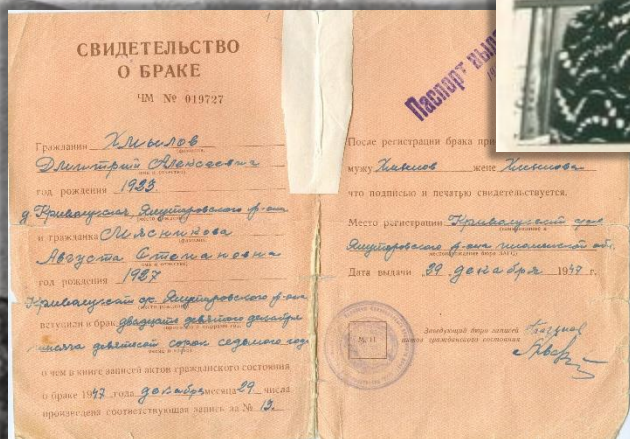 СВИДЕТЕЛЬСТВО
О БРАКЕ
ЧМ № 019727
Гражданин Хмылов
Дмитрий Алексеевич
год рождения 1923
д. Криволукская, Ялуторовского р-она
и гражданка Мясникова
Августа Степановна
год рождения 1927
Криволукский с/с Ялуторовского р-она
вступили в брак двадцать девятого декабря
тысяча девятьсот сорок седьмого года
о чем в книге записей актов гражданского состояния
о браке 1947 года декабря месяца 29 числа
произведена соответствующая запись за № 13.
Паспорт выд
После регистрации брака
мужу Хмылов жене Хмылова
что подписью и печатью свидетельствуется.
Место регистрации Криволукский
Ялуторовского р-она Тюменской обл.
Дата выдачи 29 декабря 1947 г.
Заведующий бюро записей
актов гражданского состояния